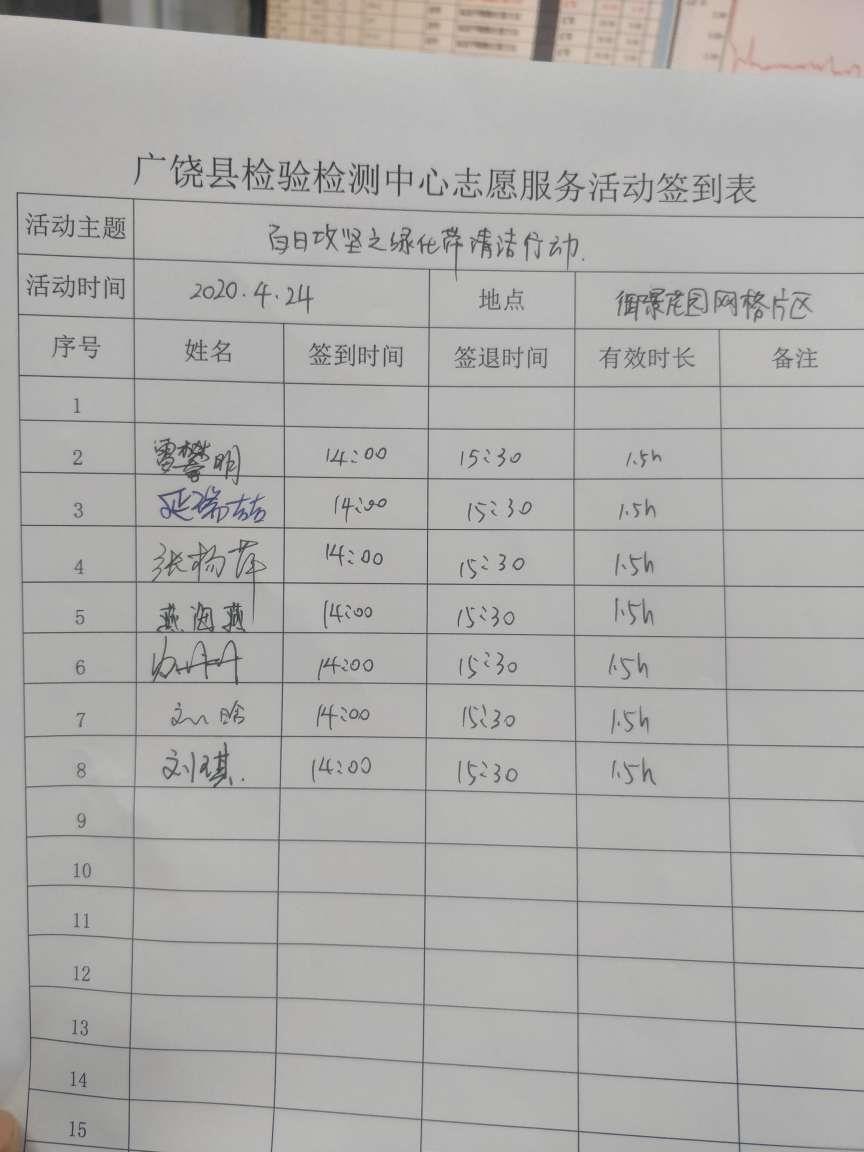 广饶县检验检测中心志愿服务活动签到表
活动主题 百日攻坚之绿化带清洁行动.
活动时间 2020.4.24 地点 御景花园网格片区
序号 姓名 签到时间 签退时间 有效时长 备注
1
2 雷攀明 14:00 15:30 1.5h
3 延瑞喆 14:00 15:30 1.5h
4 张杨萍 14:00 15:30 1.5h
5 燕海燕 14:00 15:30 1.5h
6 14:00 15:30 1.5h
7 刘晗 14:00 15:30 1.5h
8 刘琪. 14:00 15:30 1.5h
9
10
11
12
13
14
15